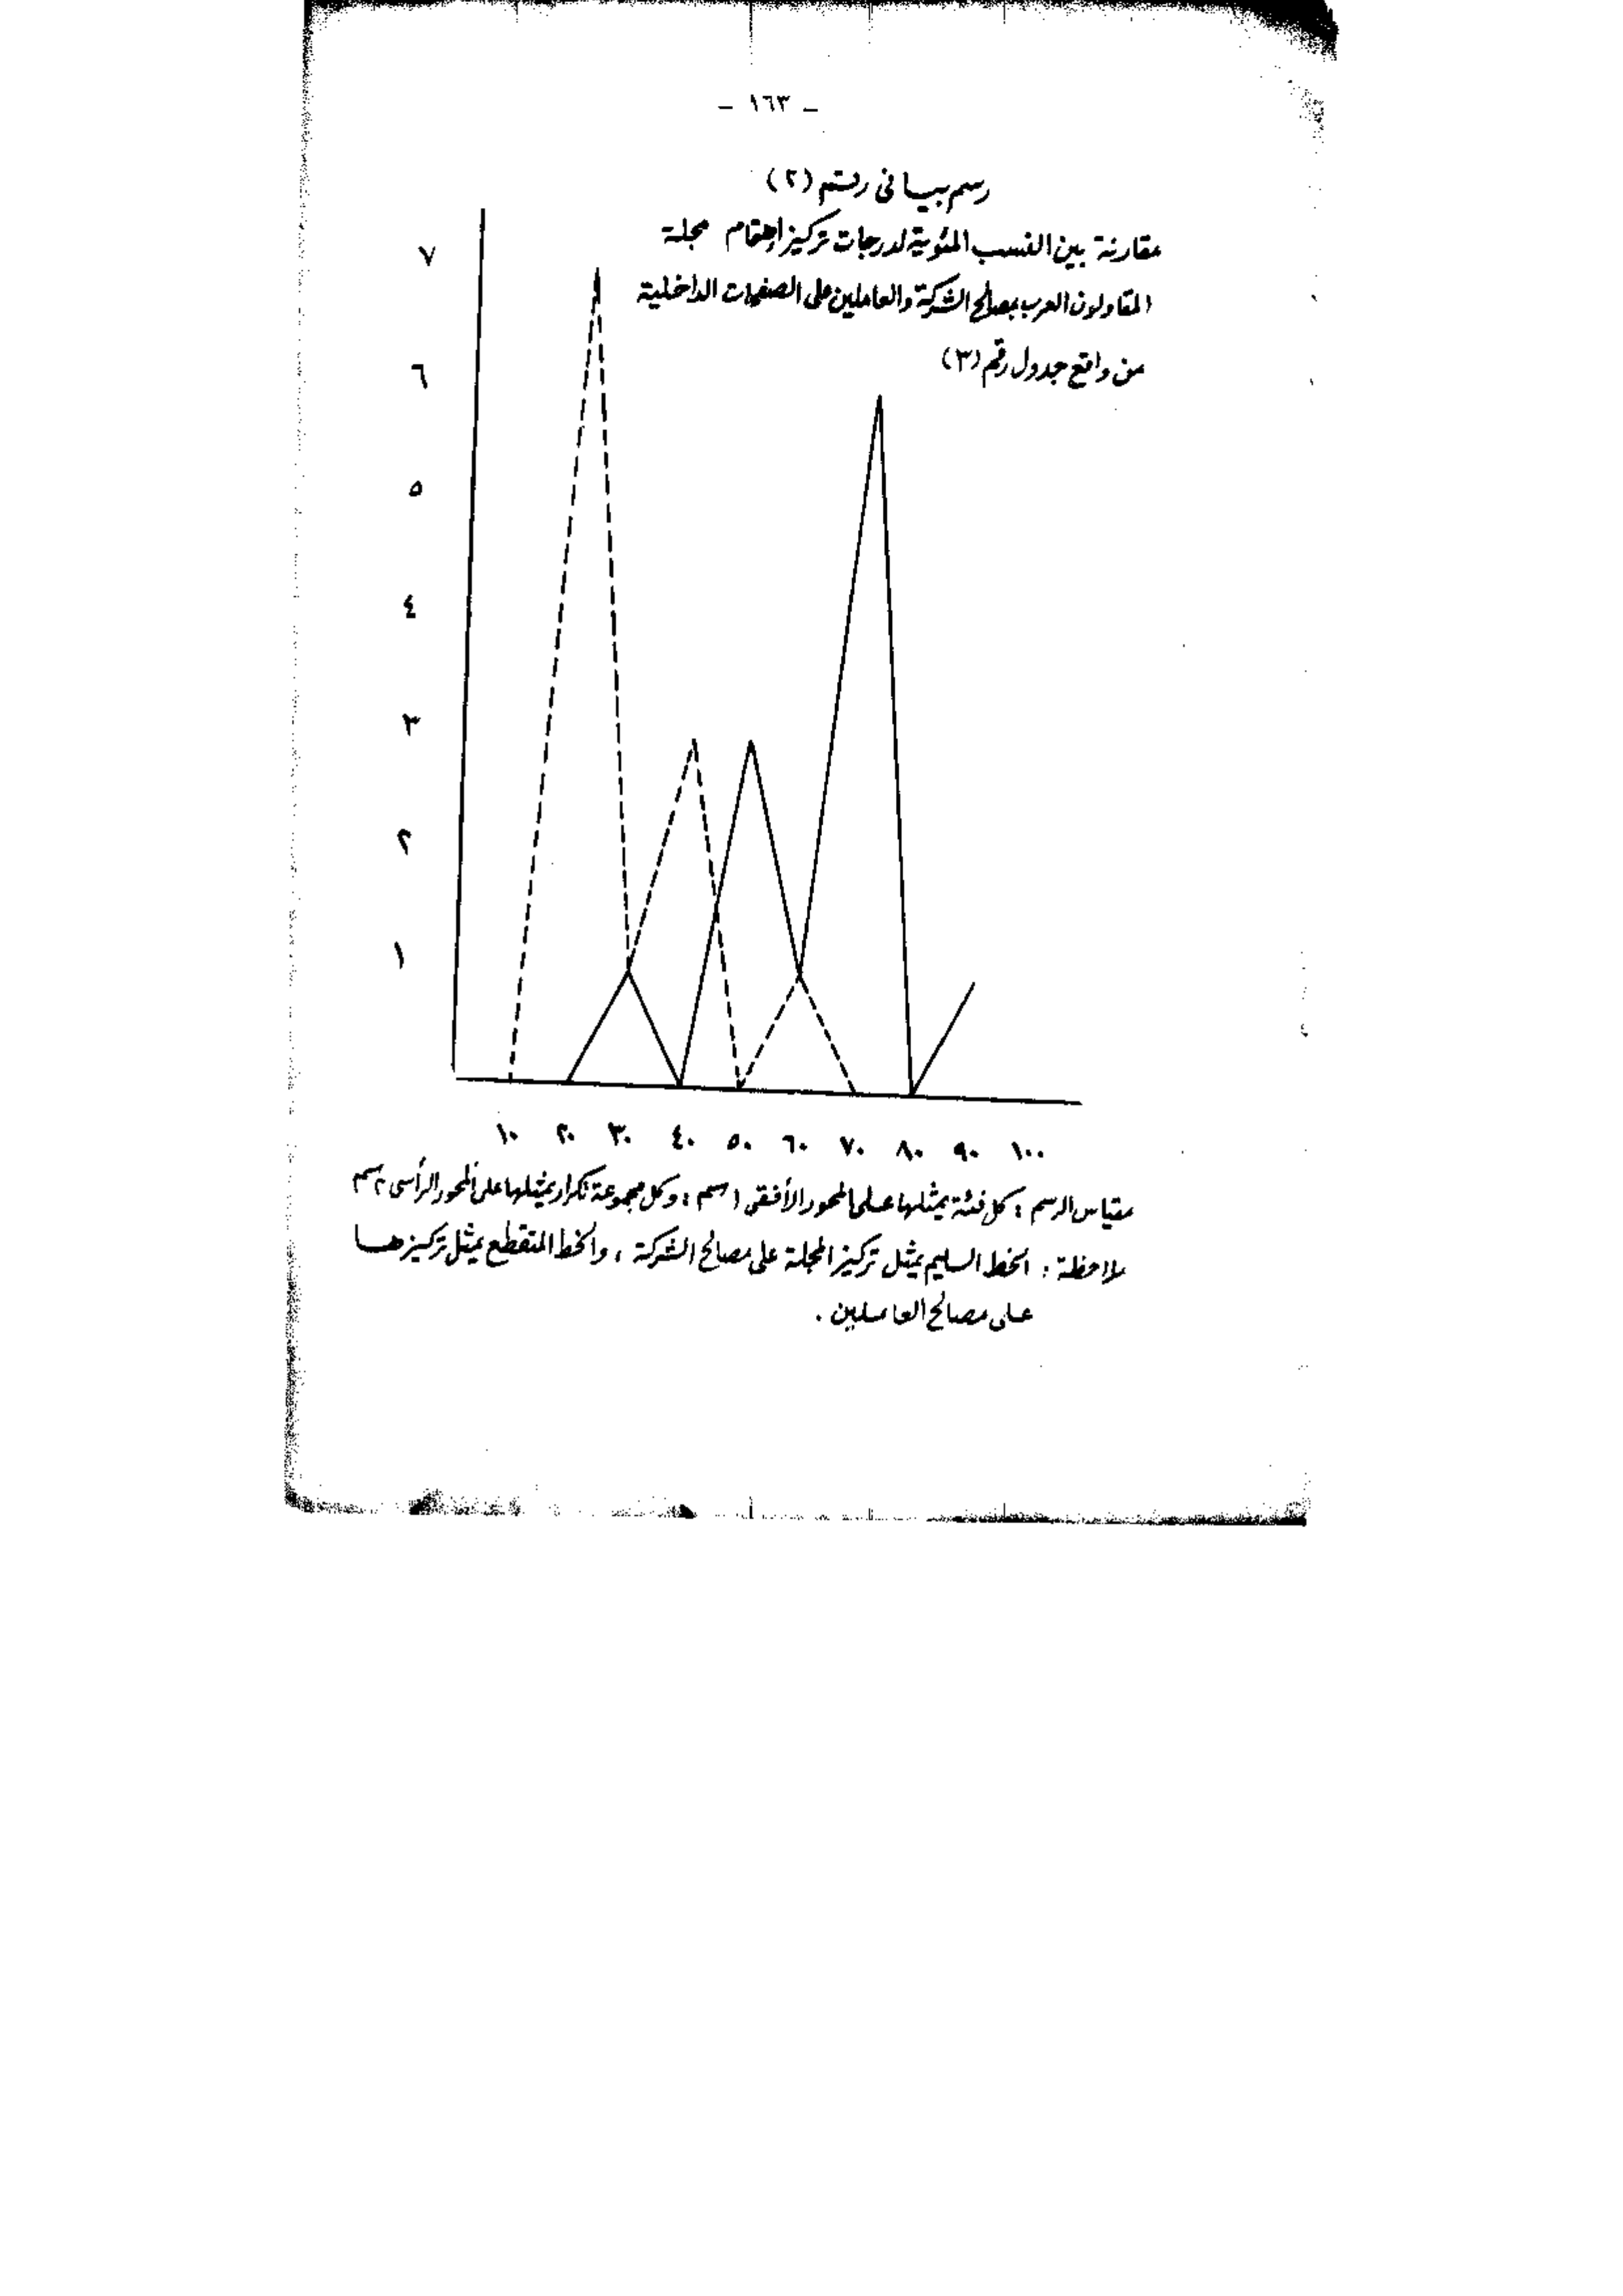 – ١٦٣ –
رسم بيانى رقم (٢)
مقارنة بين النسب المئوية لدرجات تركيز إهتمام مجلة
المقاولون العرب بمصالح الشركة والعاملين على الصفحات الداخلية
من واقع جدول رقم (٣)
٧
٦
٥
٤
٣
٢
١
١٠ ٢٠ ٣٠ ٤٠ ٥٠ ٦٠ ٧٠ ٨٠ ٩٠ ١٠٠
مقياس الرسم : كل فئة يمثلها على المحور الأفقى ١ سم ؛ وكل مجموعة تكرار يمثلها على المحور الرأسى ٢ سم
ملاحظة : الخط السليم يمثل تركيز المجلة على مصالح الشركة ، والخط المتقطع يمثل تركيزها
على مصالح العاملين .